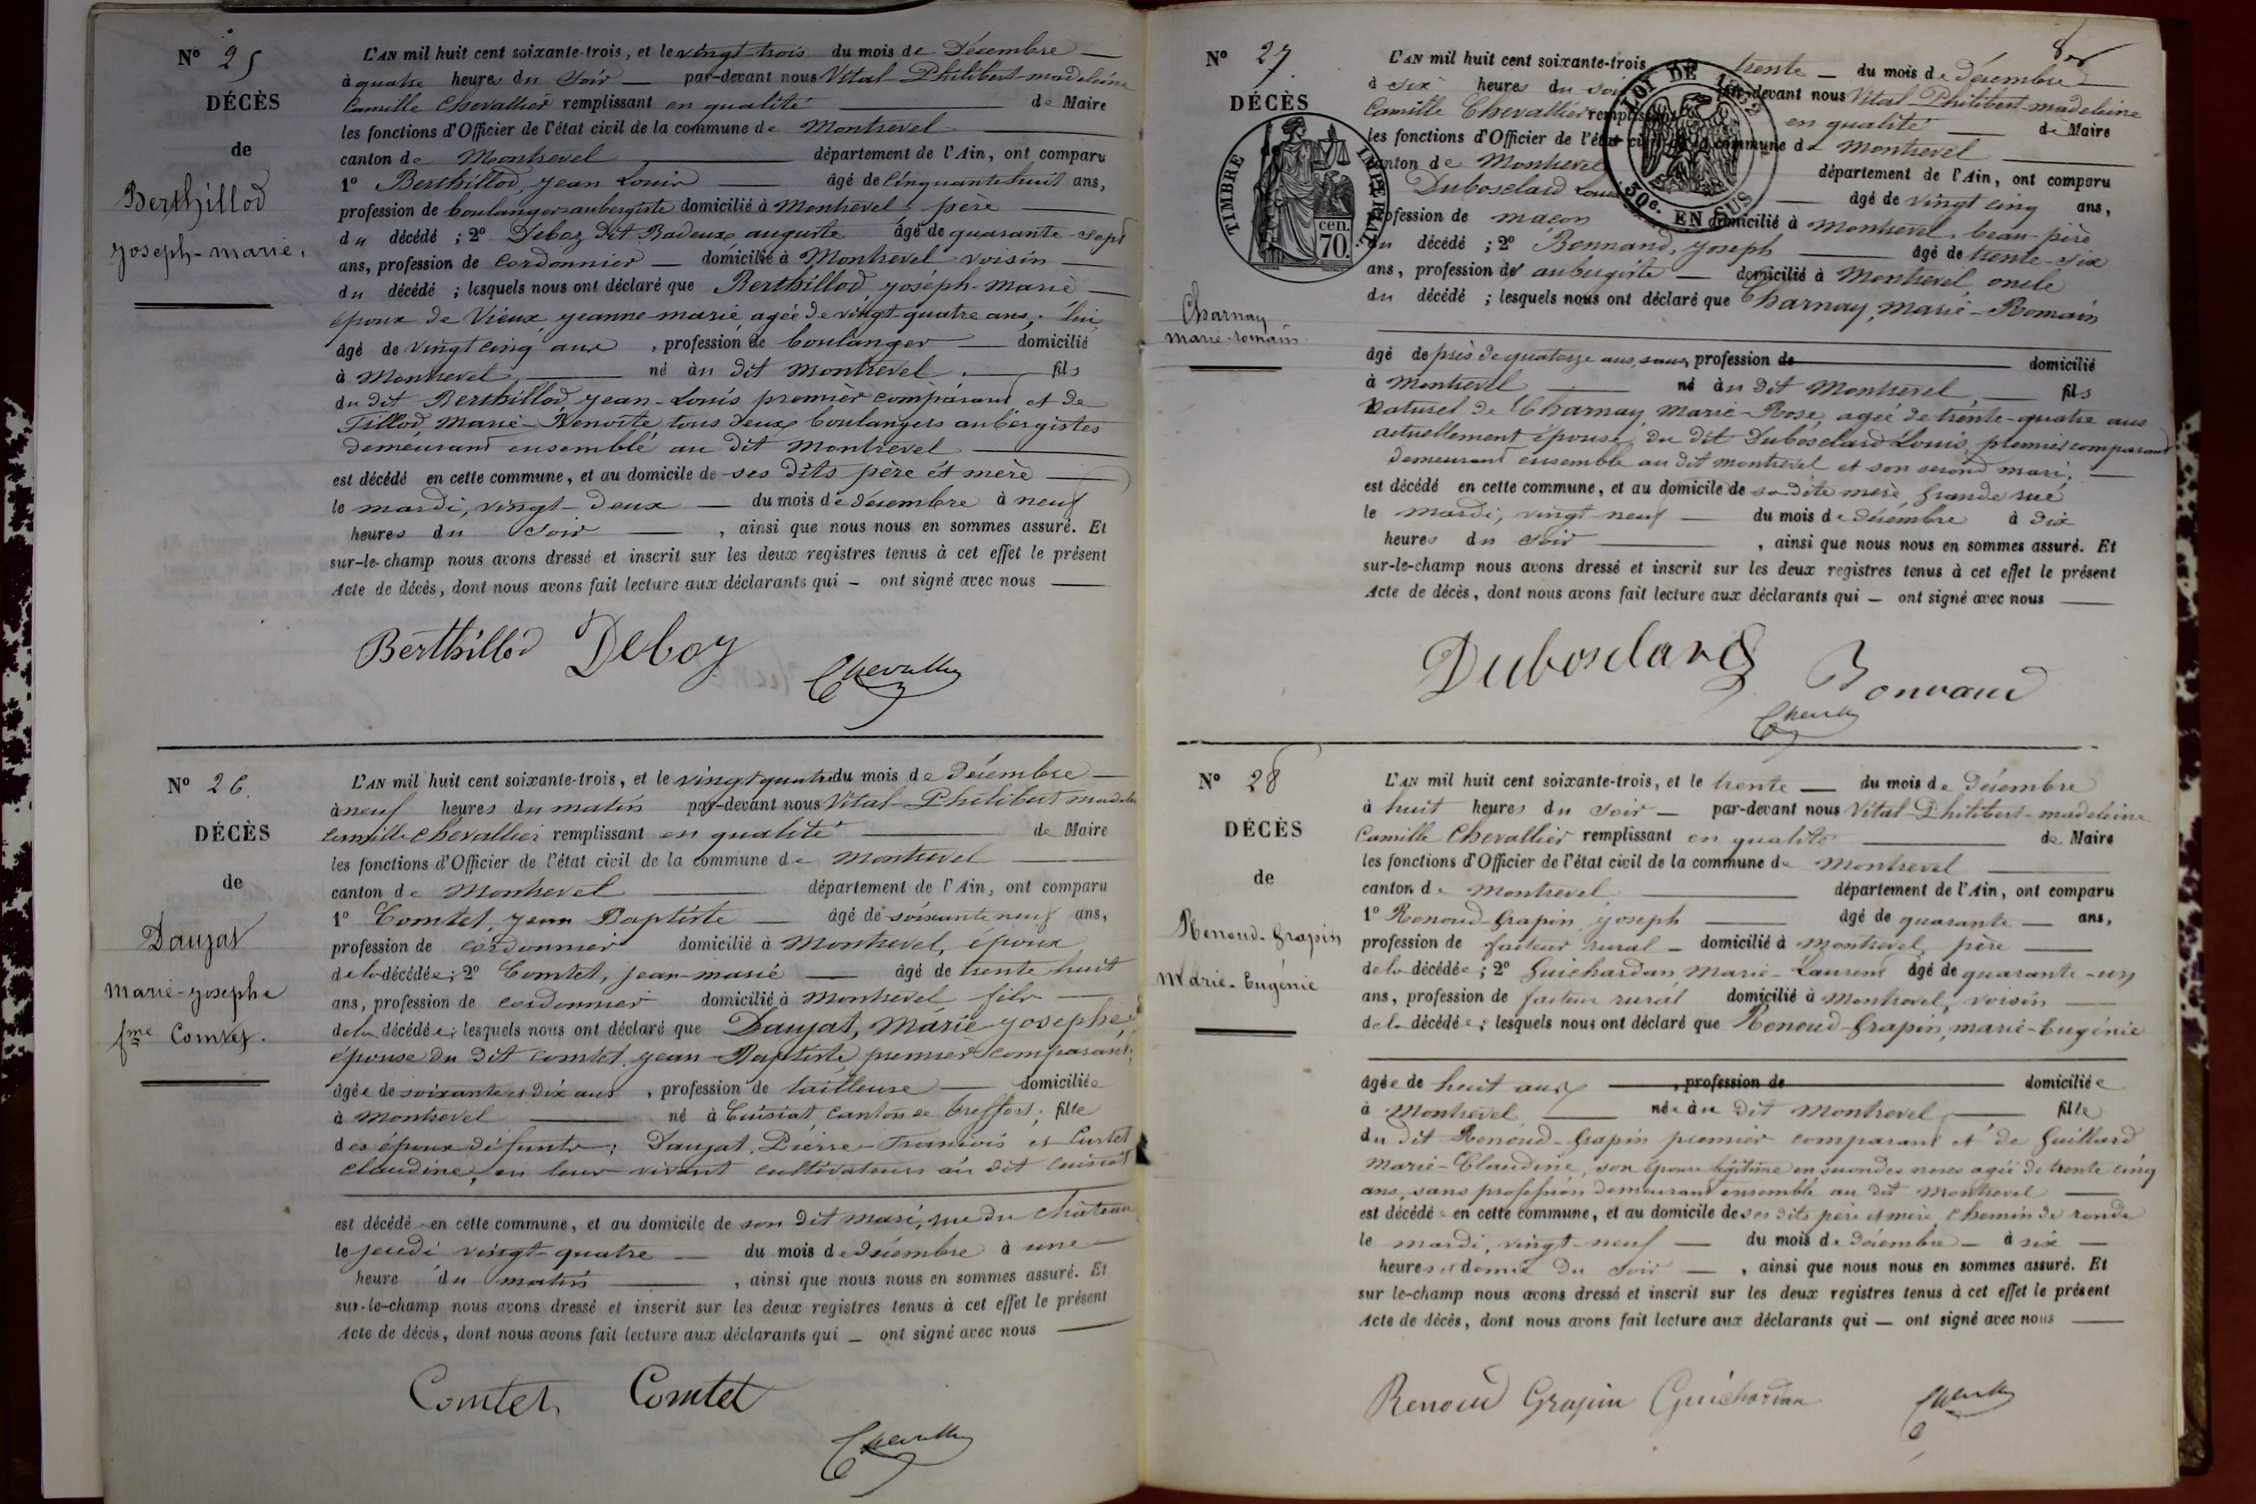 N° 25
DÉCÈS
de
Berthillod
Joseph-marie.
L'AN mil huit cent soixante-trois, et le vingt-trois du mois de Décembre
à quatre heures du Soir par-devant nous Vital-Philibert-madeleine
Camille Chevallier remplissant en qualité de Maire
les fonctions d'Officier de l'état civil de la commune de Montrevel
canton de Montrevel département de l'Ain, ont comparu
1° Berthillod, Jean Louis âgé de Cinquante huit ans,
profession de boulanger-aubergiste domicilié à Montrevel, père
du décédé ; 2° Deboz dit Badeux auguste âgé de quarante-sept
ans, profession de Cordonnier domicilié à Montrevel voisin
du décédé ; lesquels nous ont déclaré que Berthillod Joseph-Marie
époux de Vieux, Jeanne-marie, agée de vingt-quatre ans, lui
âgé de vingt cinq ans , profession de boulanger domicilié
à Montrevel né au dit Montrevel fils
du dit Berthillod, Jean-Louis premier comparant et de
Tillod Marie-Benoite tous deux boulangers aubergistes
demeurant ensemble au dit Montrevel
est décédé en cette commune, et au domicile de ses dits père et mère
le mardi, vingt-deux du mois de décembre à neuf
heures du Soir , ainsi que nous nous en sommes assuré. Et
sur-le-champ nous avons dressé et inscrit sur les deux registres tenus à cet effet le présent
Acte de décès, dont nous avons fait lecture aux déclarants qui ont signé avec nous
Berthillod Deboz
Chevallier
N° 26.
DÉCÈS
de
Daujat
Marie-Josephe
fme Comtet.
L'AN mil huit cent soixante-trois, et le vingt quatre du mois de Décembre
à neuf heures du matin par-devant nous Vital-Philibert
Camille Chevallier remplissant en qualité de Maire
les fonctions d'Officier de l'état civil de la commune de Montrevel
canton de Montrevel département de l'Ain, ont comparu
1° Comtet, Jean Baptiste âgé de soixante neuf ans,
profession de cordonnier domicilié à Montrevel, époux
de la décédée ; 2° Comtet, Jean-marie âgé de trente huit
ans, profession de cordonnier domicilié à Montrevel fils
de la décédée ; lesquels nous ont déclaré que Daujat, Marie Josephe,
épouse du dit Comtet Jean-Baptiste premier comparant,
âgée de soixante et dix ans , profession de tailleuse domiciliée
à Montrevel né à Cuisiat, canton de Treffort, fille
des époux défunts, Daujat, Pierre-François et Curtet
Claudine, en leur vivant cultivateurs au dit Cuisiat
est décédée en cette commune, et au domicile de son dit mari, rue du Château
le jeudi vingt-quatre du mois de décembre à une
heure du matin , ainsi que nous nous en sommes assuré. Et
sur-le-champ nous avons dressé et inscrit sur les deux registres tenus à cet effet le présent
Acte de décès, dont nous avons fait lecture aux déclarants qui ont signé avec nous
Comtet Comtet
Chevallier
N° 27.
DÉCÈS
TIMBRE IMPÉRIAL
cen.
70.
Charnay
marie-romain
LOI DE 1862
50c. EN SUS
L'AN mil huit cent soixante-trois trente du mois de décembre
à six heures du soir par-devant nous Vital-Philibert-madeleine
Camille Chevallier remplissant en qualité de Maire
les fonctions d'Officier de l'état civil de la commune de Montrevel
canton de Montrevel département de l'Ain, ont comparu
Dubosclard Louis âgé de vingt cinq ans,
profession de maçon domicilié à Montrevel, beau-père
du décédé ; 2° Bonnand, Joseph âgé de trente-six
ans, profession de aubergiste domicilié à Montrevel oncle
du décédé ; lesquels nous ont déclaré que Charnay, Marie-Romain
âgé de près de quatorze ans, sans profession de domicilié
à Montrevel né au dit Montrevel, fils
naturel de Charnay Marie-Rose, agée de trente-quatre ans
actuellement épouse, du dit Dubosclard Louis, premier comparant
demeurant ensemble au dit Montrevel et son second mari,
est décédé en cette commune, et au domicile de sa dite mère, Grande rue
le mardi, vingt-neuf du mois de décembre à dix
heures du Soir , ainsi que nous nous en sommes assuré. Et
sur-le-champ nous avons dressé et inscrit sur les deux registres tenus à cet effet le présent
Acte de décès, dont nous avons fait lecture aux déclarants qui ont signé avec nous
Dubosclard Bonnand
Chevallier
N° 28
DÉCÈS
de
Renoud-Grapin
Marie-Eugénie
L'AN mil huit cent soixante-trois, et le trente du mois de Décembre
à huit heures du Soir par-devant nous Vital-Philibert-madeleine
Camille Chevallier remplissant en qualité de Maire
les fonctions d'Officier de l'état civil de la commune de Montrevel
canton de Montrevel département de l'Ain, ont comparu
1° Renoud-Grapin, Joseph âgé de quarante ans,
profession de facteur rural domicilié à Montrevel, père
de la décédée ; 2° Guichardan Marie-Laurent âgé de quarante-un
ans, profession de facteur rural domicilié à Montrevel, voisin
de la décédée ; lesquels nous ont déclaré que Renoud-Grapin, marie-Eugénie
âgée de huit ans , profession de domiciliée
à Montrevel née au dit Montrevel fille
du dit Renoud-Grapin premier comparant et de Guillard
Marie-Claudine, son épouse légitime en secondes noces agée de trente cinq
ans, sans profession demeurant ensemble au dit Montrevel
est décédée en cette commune, et au domicile de ses dits père et mère, Chemin de ronde
le mardi, vingt-neuf du mois de décembre à six
heures et demie du soir , ainsi que nous nous en sommes assuré. Et
sur-le-champ nous avons dressé et inscrit sur les deux registres tenus à cet effet le présent
Acte de décès, dont nous avons fait lecture aux déclarants qui ont signé avec nous
Renoud Grapin Guichardan
Chevallier